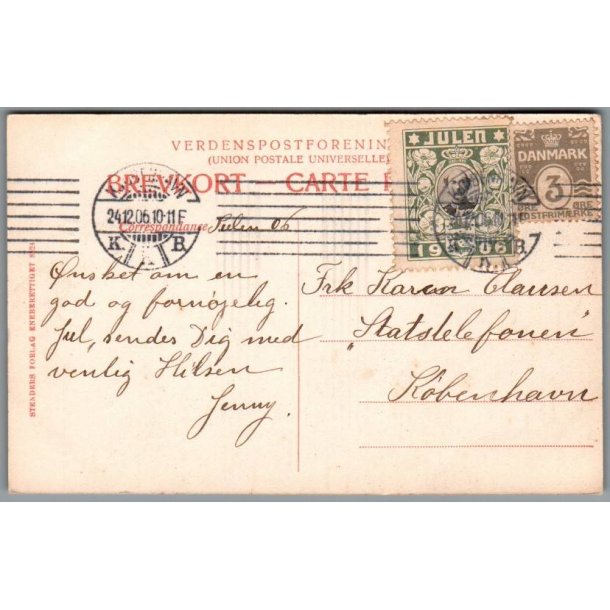 VERDENSPOSTFORENIN
(UNION POSTALE UNIVERSELLE
BREVKORT - CARTE
Correspondance
Julen 06
24.12.06.10-11 F
K B
JULEN
1906
DANMARK
3
ØRE ØRE
POSTFRIMÆRKE
Ønsket om en
god og fornøjelig
Jul, sendes Dig med
venlig Hilsen
Jenny.
Frk Karen Clausen
"Statstelefonen"
København
STENDERS FORLAG ENEBERETTIGET